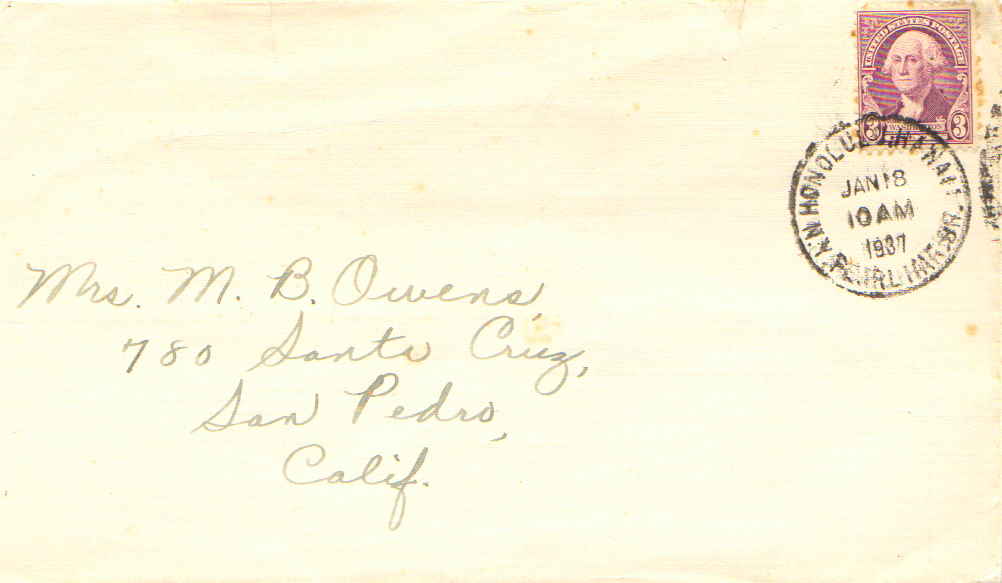 UNITED STATES POSTAGE
3 WASHINGTON 3
HONOLULU, HAWAII
JAN 18
10 AM
1937
PEARL HBR. BR.
Mrs. M. B. Owens,
780 Santa Cruz,
San Pedro,
Calif.